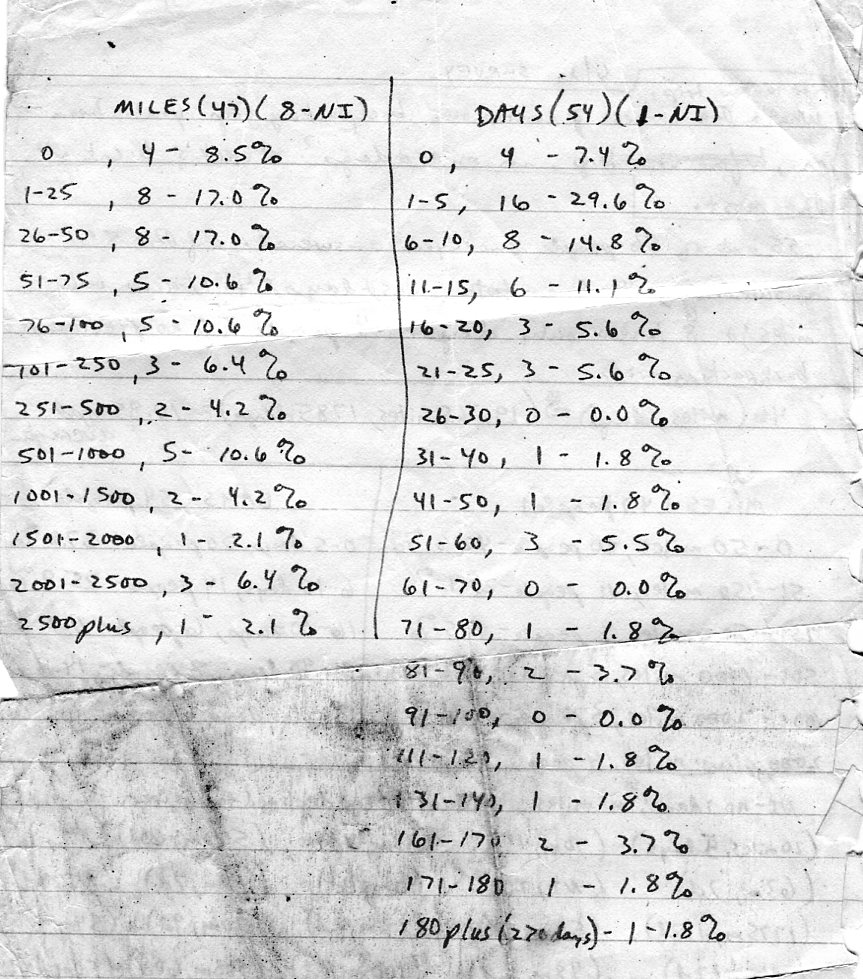 MILES (47) (8-NI)
0 , 4 - 8.5%
1-25 , 8 - 17.0%
26-50 , 8 - 17.0%
51-75 , 5 - 10.6%
76-100 , 5 - 10.6%
101-250 , 3 - 6.4%
251-500 , 2 - 4.2%
501-1000 , 5 - 10.6%
1001-1500 , 2 - 4.2%
1501-2000 , 1 - 2.1%
2001-2500 , 3 - 6.4%
2500 plus , 1 - 2.1%
DAYS (54) (1-NI)
0 , 4 - 7.4%
1-5, 16 - 29.6%
6-10, 8 - 14.8%
11-15, 6 - 11.1%
16-20, 3 - 5.6%
21-25, 3 - 5.6%
26-30, 0 - 0.0%
31-40, 1 - 1.8%
41-50, 1 - 1.8%
51-60, 3 - 5.5%
61-70, 0 - 0.0%
71-80, 1 - 1.8%
81-90, 2 - 3.7%
91-100, 0 - 0.0%
111-120, 1 - 1.8%
131-140, 1 - 1.8%
161-170 2 - 3.7%
171-180 1 - 1.8%
180 plus (270 days) - 1 - 1.8%